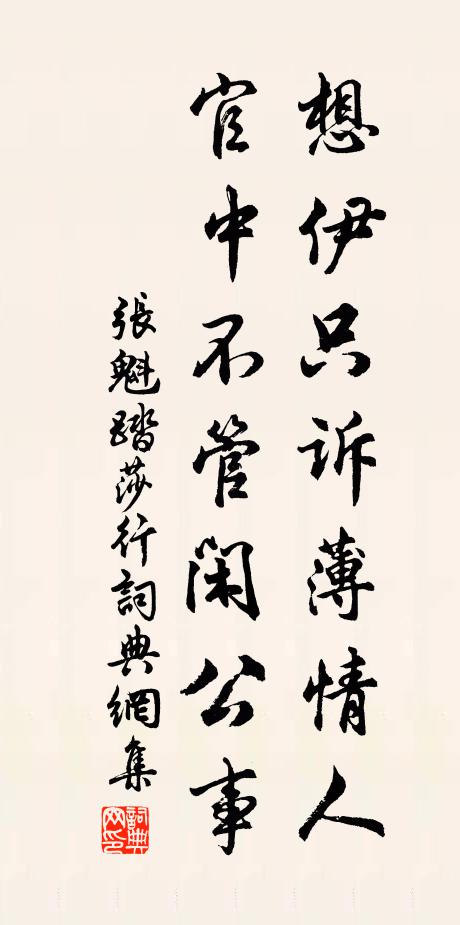 想伊只訴薄情人
官中不管閑公事
張魁踏莎行詞典網集
詞典網印